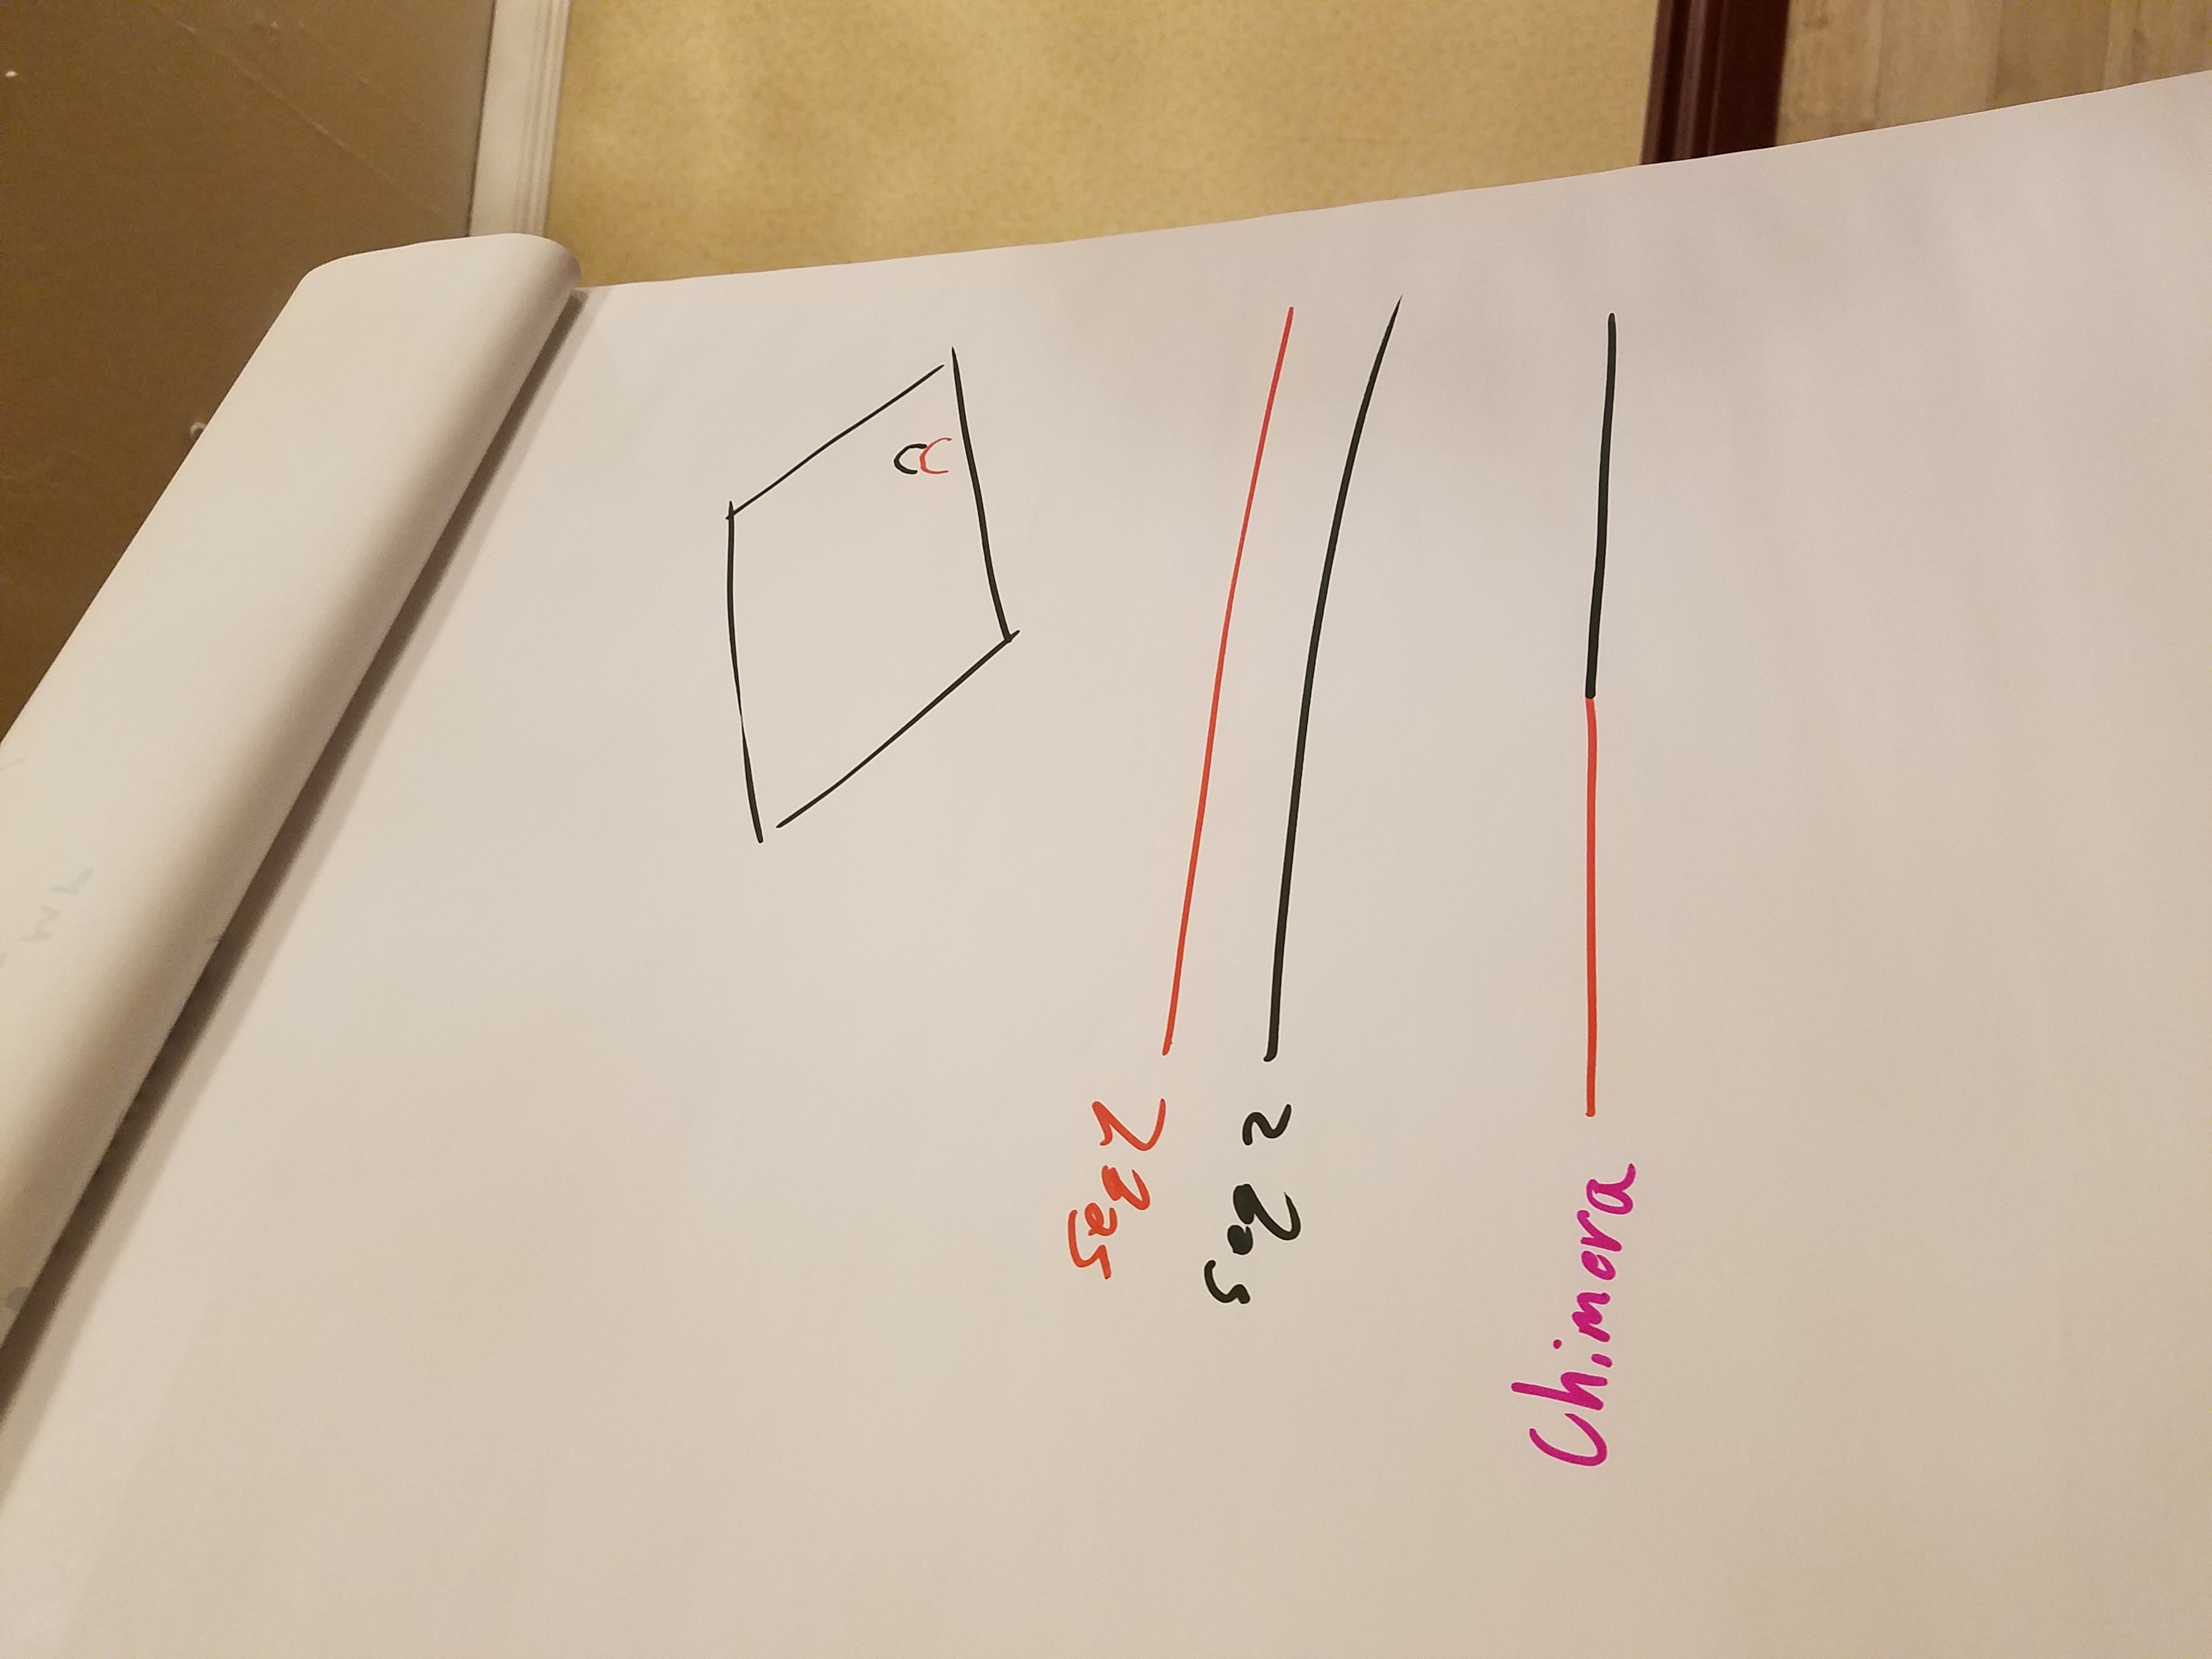 seq 1
seq 2
Chimera